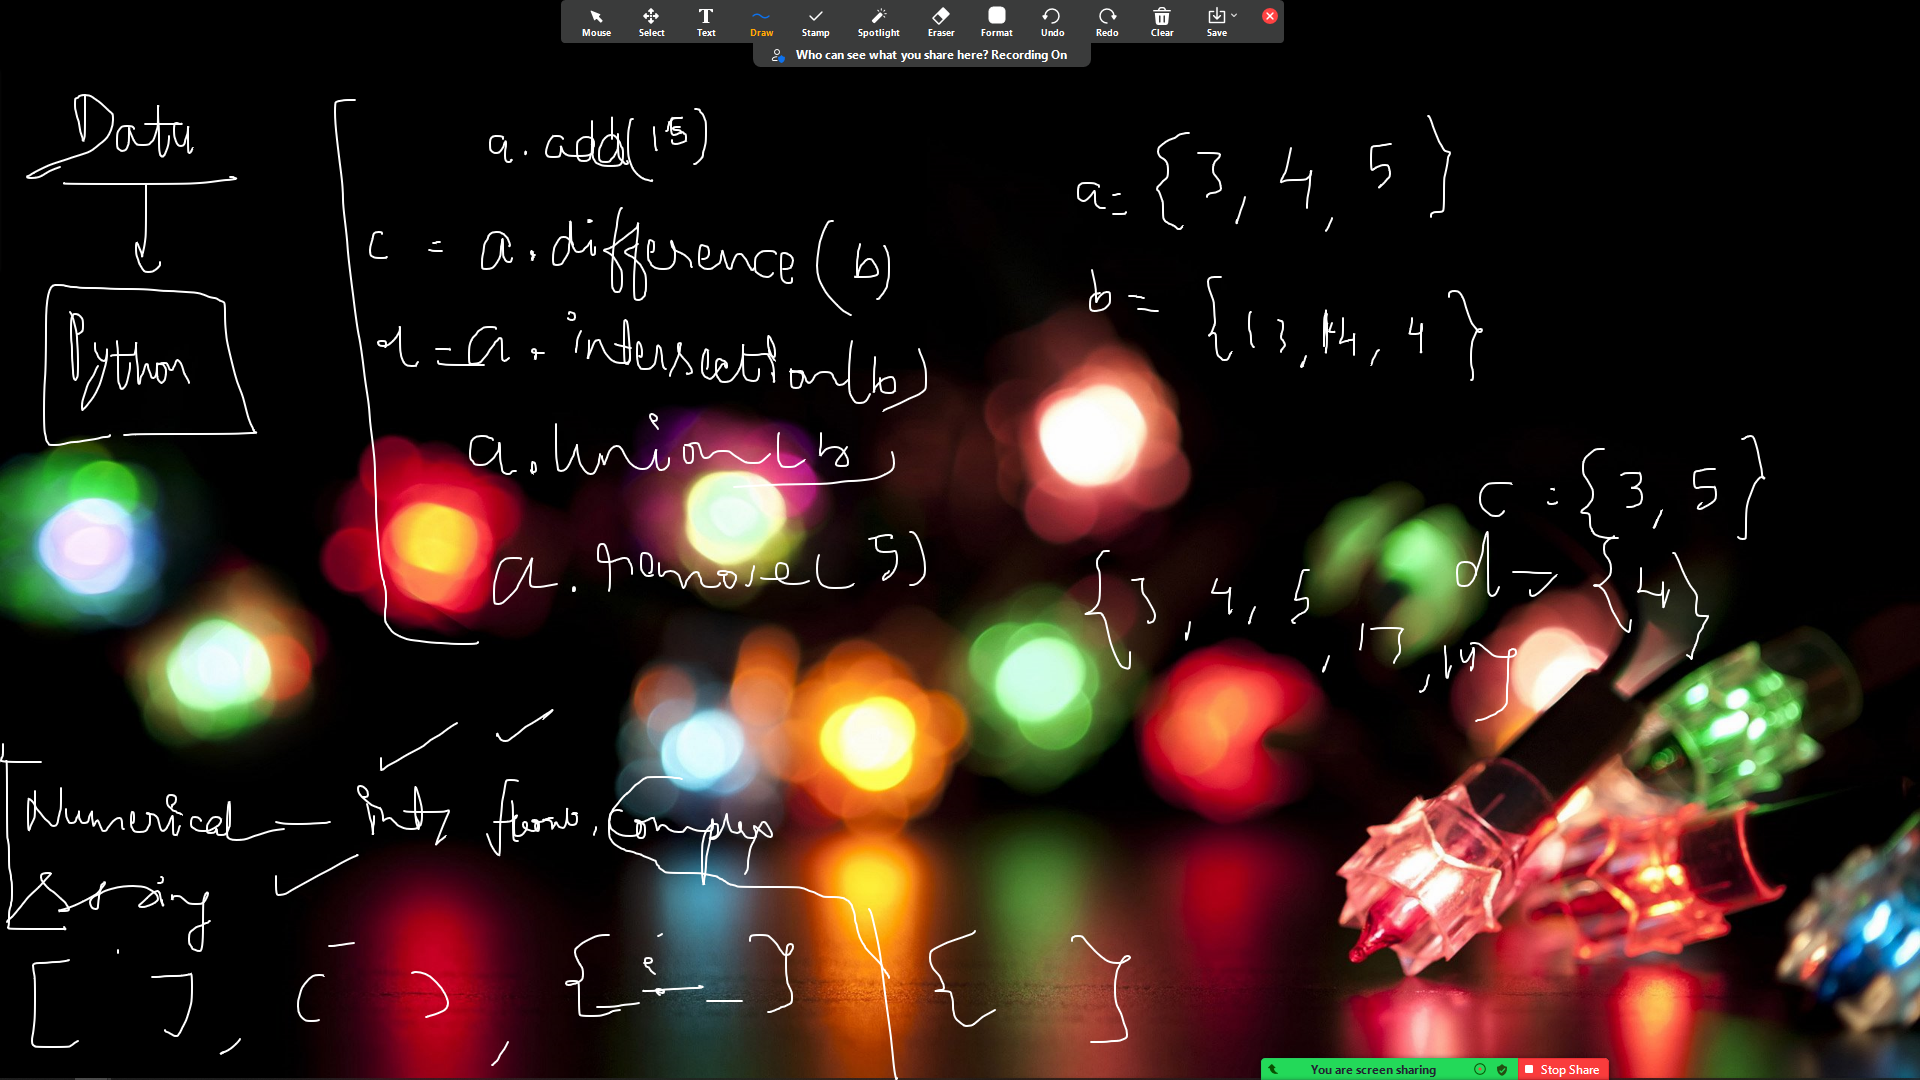 Mouse Select Text Draw Stamp Spotlight Eraser Format Undo Redo Clear Save
Who can see what you share here? Recording On
Data
Python
a.add(15)
c = a.difference(b)
d = a.intersection(b)
a.union(b)
a.remove(5)
a= {3, 4, 5}
b = {13, 14, 4}
c = {3, 5}
d = {4}
{3, 4, 5, 13, 14}
Numerical — int, float, complex
String
[ ], ( ), { : } { }
You are screen sharing Stop Share